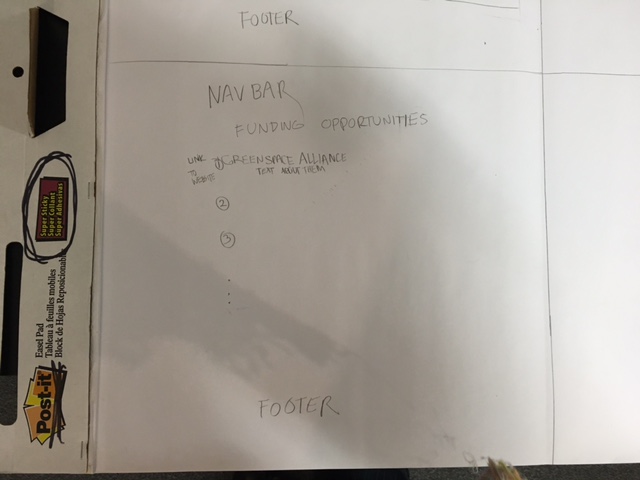 Post-it®
Easel Pad
Tableau à feuilles mobiles
Block de Hojas Reposicionable
Super Sticky
Super Collant
Super Adhesivas
FOOTER
NAV BAR
FUNDING OPPORTUNITIES
① GREENSPACE ALLIANCE
TEXT ABOUT THEM
LINK
TO
WEBSITE
②
③
....
FOOTER